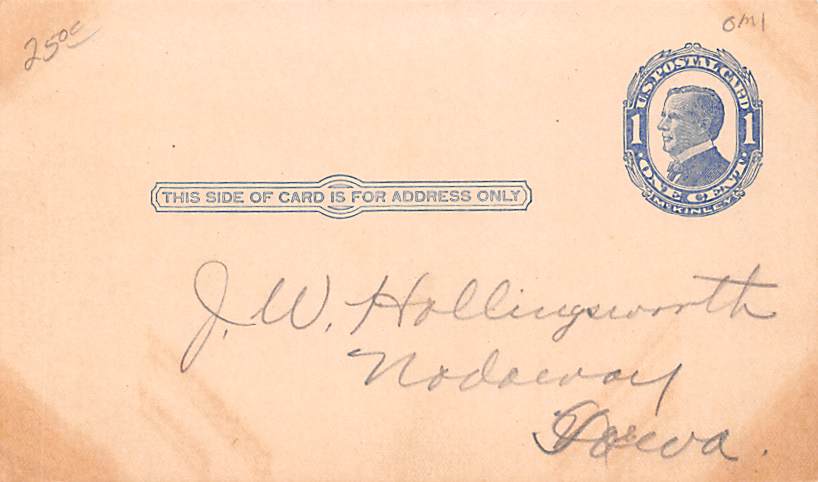 25¢
OM1
U.S. POSTAL CARD
1 1
ONE CENT
McKINLEY
THIS SIDE OF CARD IS FOR ADDRESS ONLY
J. W. Hollingsworth
Nodaway
Iowa.